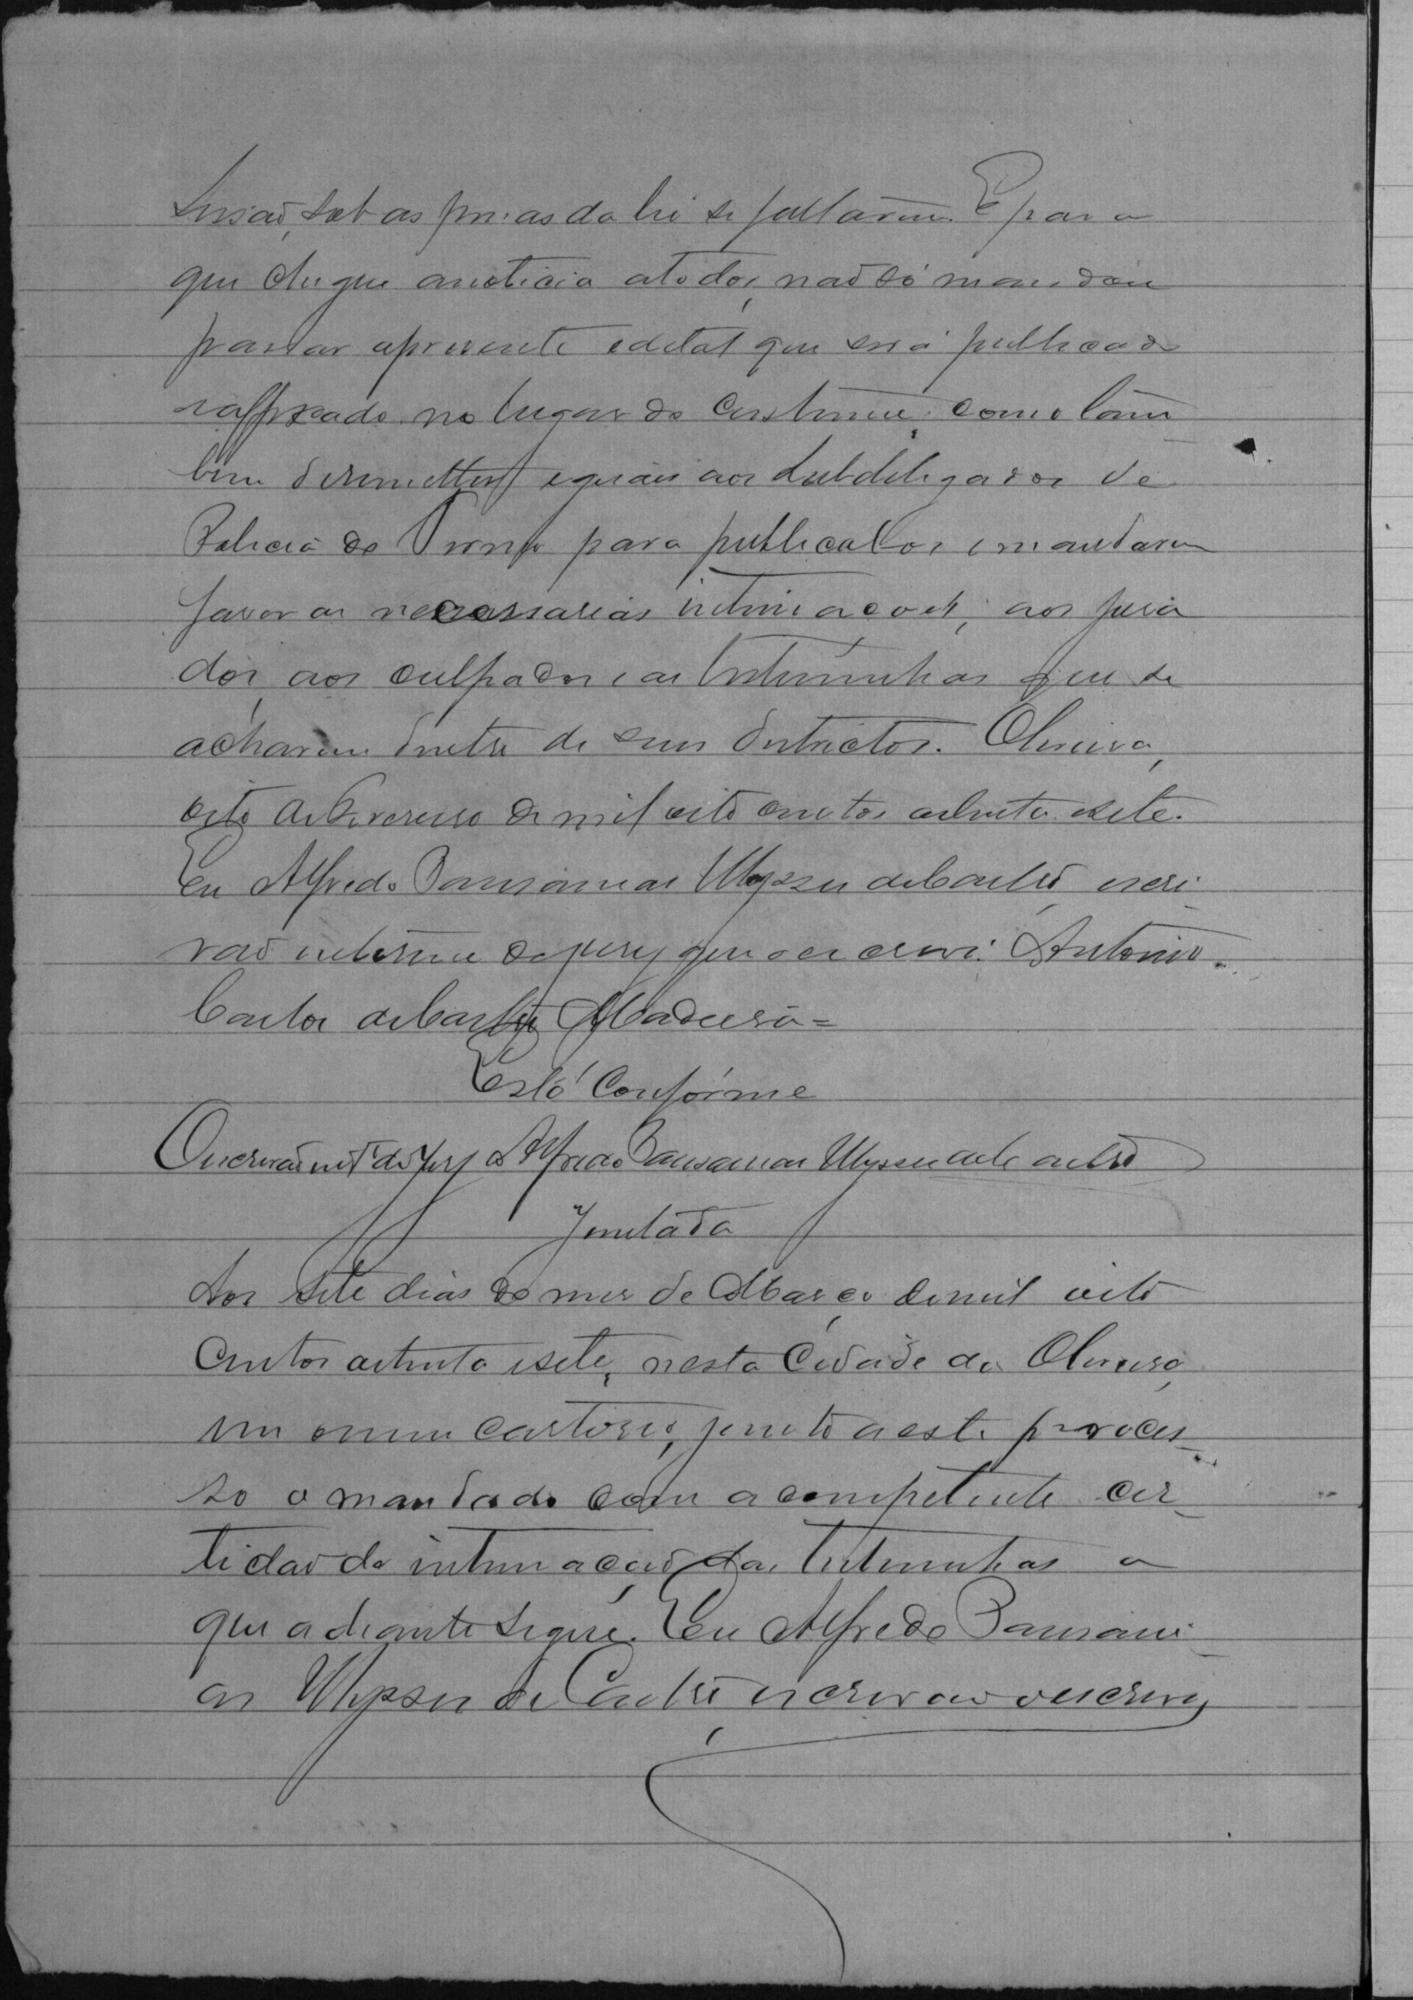 sessão, sob as penas da lei se faltarem. E para
que chegue a noticia a todos, não só mandou
passar o presente edital que será publicado
e affixado no lugar do costume, como tam
bem remetter eguaes aos Subdelegados de
Policia do Termo para publical-os e mandarem
fazer as necessarias intimações, aos jura
dos, aos culpados e as testemunhas que se
acharem dentro de seus districtos. Oliveira,
oito de Fevereiro de mil oito centos oitenta e sete.
Eu Alfredo Pausanias Ulysses de Castro, escri
vão interino do jury que o escrevi. Antonio
Carlos de Castro Madeira =
Está conforme
O escrivão intº do jury Alfredo Pausanias Ulysses de Castro
Juntada
Aos sete dias do mez de Março de mil oito
centos oitenta e sete, nesta Cidade da Oliveira
em o meu cartorio, junto a este proces_
so o mandado com a competente cer_
tidão de intimação das testemunhas o
que adiante segue. Eu Alfredo Pausani_
as Ulysses de Castro, escrivão o escrevy